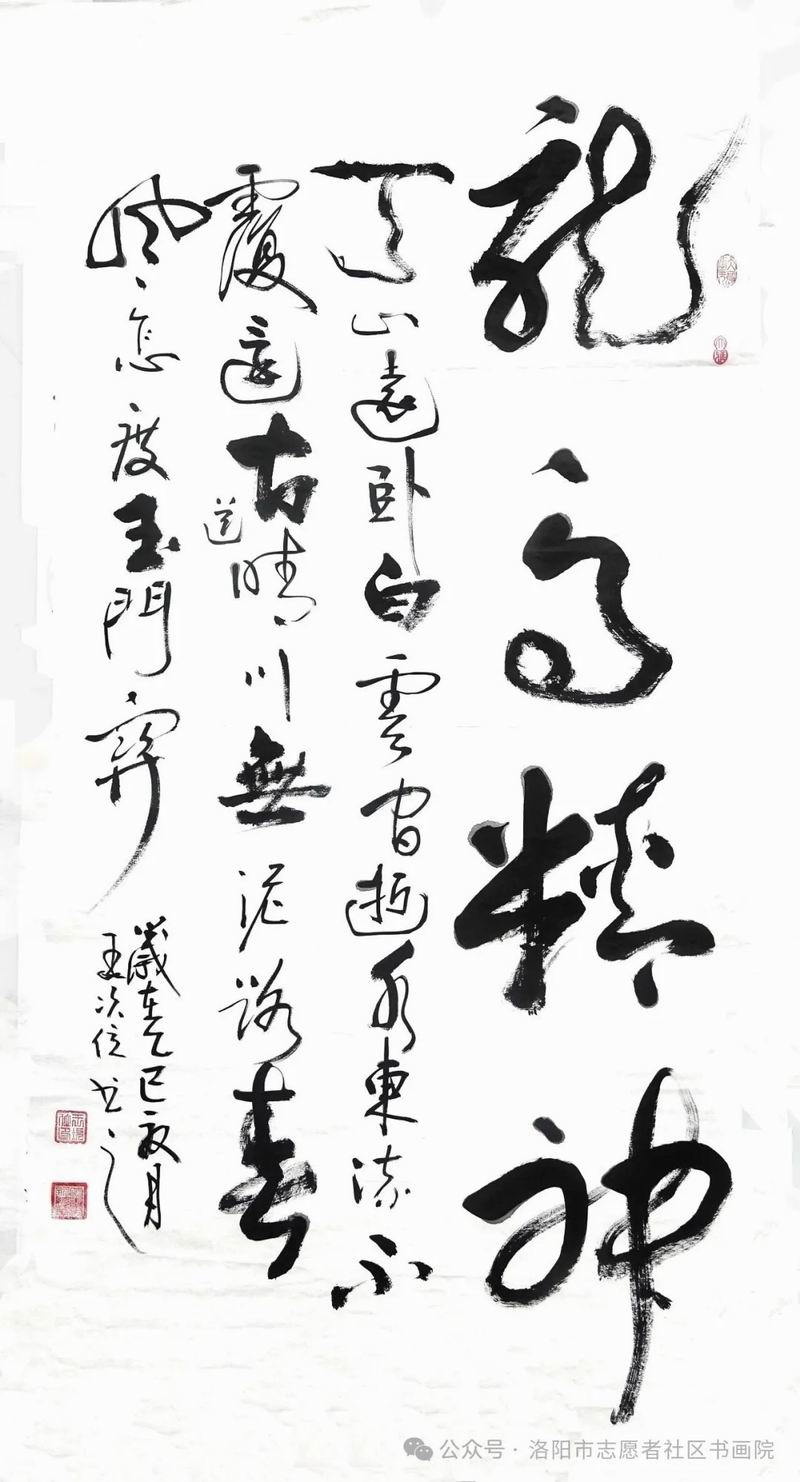 龍馬精神
天山遠卧白雲間逝水東流不
覆還古道晴川無泥路春
風怎度玉門關
歲在乙巳月
王信书
公众号·洛阳市志愿者社区书画院